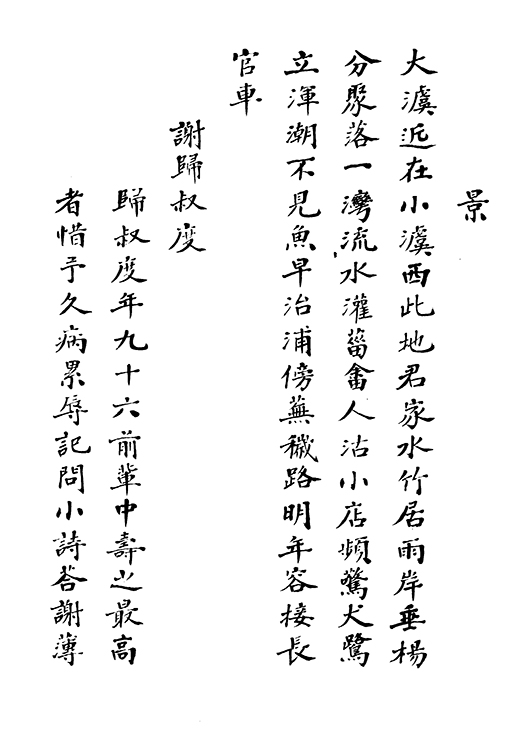 景
大澞近在小澞西此地君家水竹居兩岸垂楊
分聚落一灣流水灌菑畬人沽小店頻驚犬鷺
立渾潮不見魚早治浦傍蕪穢路明年容接長
官車
謝歸叔度
歸叔度年九十六前輩中壽之最高
者惜予久病累辱記問小詩荅謝薄